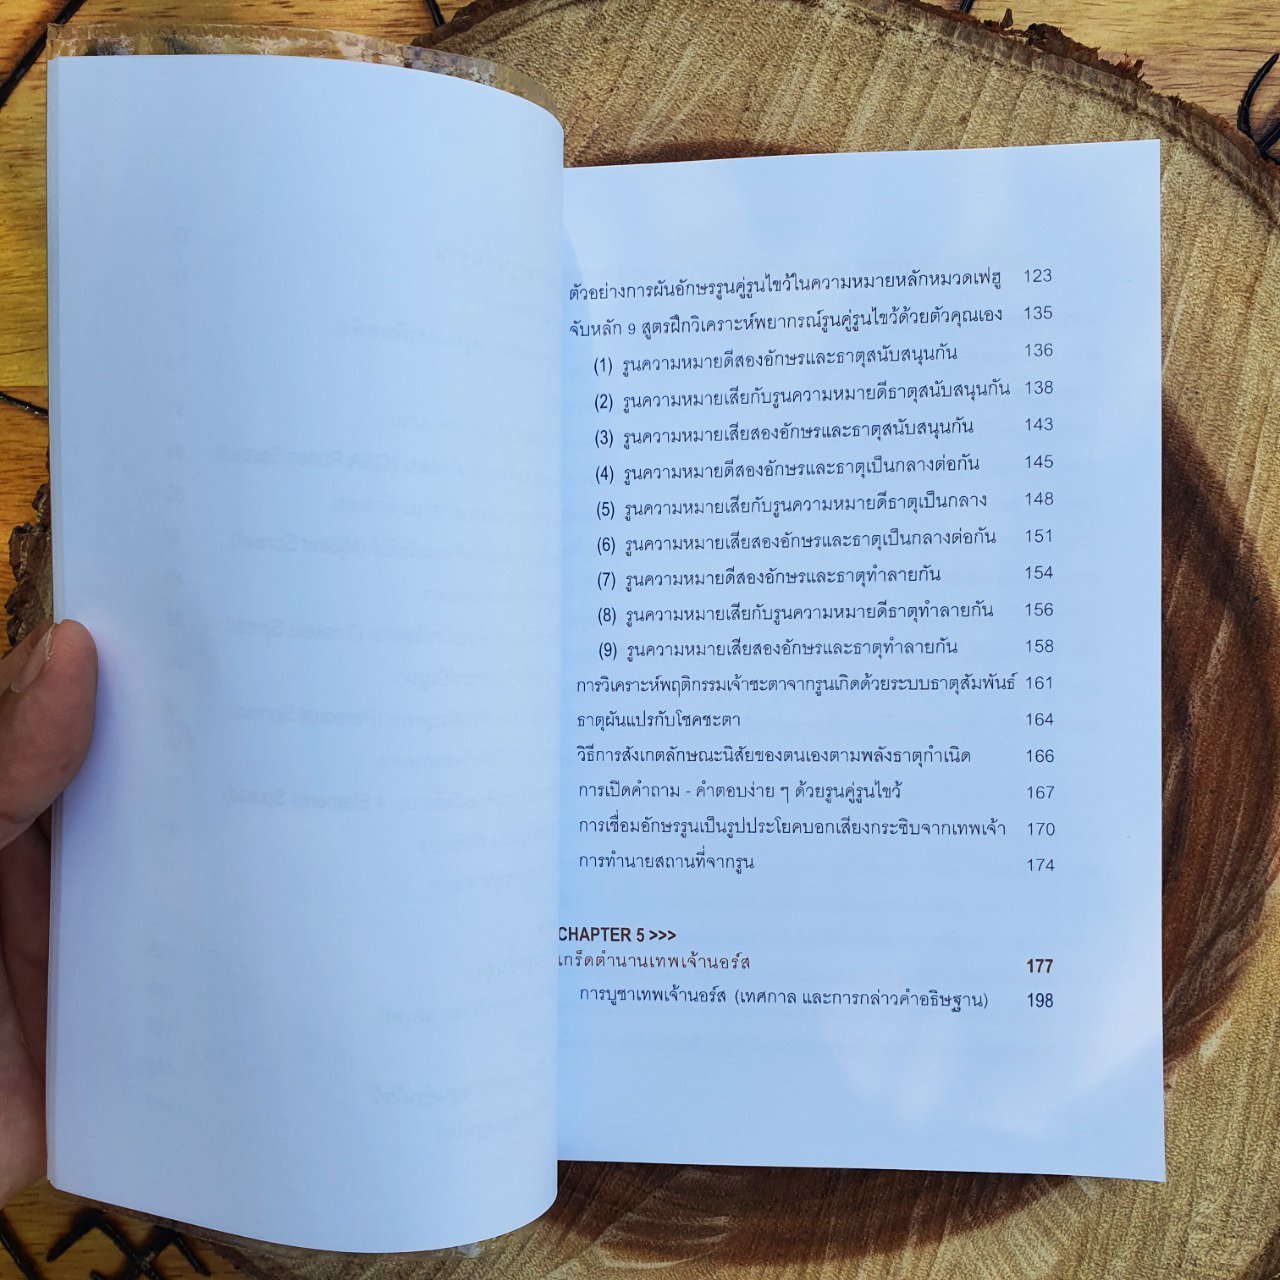 ตัวอย่างการผันอักษรรูนคู่รูนไขว้ในความหมายหลักหมวดเฟฮู 123
จับหลัก 9 สูตรฝึกวิเคราะห์พยากรณ์รูนคู่รูนไขว้ด้วยตัวคุณเอง 135
(1) รูนความหมายดีสองอักษรและธาตุสนับสนุนกัน 136
(2) รูนความหมายเสียกับรูนความหมายดีธาตุสนับสนุนกัน 138
(3) รูนความหมายเสียสองอักษรและธาตุสนับสนุนกัน 143
(4) รูนความหมายดีสองอักษรและธาตุเป็นกลางต่อกัน 145
(5) รูนความหมายเสียกับรูนความหมายดีธาตุเป็นกลาง 148
(6) รูนความหมายเสียสองอักษรและธาตุเป็นกลางต่อกัน 151
(7) รูนความหมายดีสองอักษรและธาตุทำลายกัน 154
(8) รูนความหมายเสียกับรูนความหมายดีธาตุทำลายกัน 156
(9) รูนความหมายเสียสองอักษรและธาตุทำลายกัน 158
การวิเคราะห์พฤติกรรมเจ้าชะตาจากรูนเกิดด้วยระบบธาตุสัมพันธ์ 161
ธาตุผันแปรกับโชคชะตา 164
วิธีการสังเกตลักษณะนิสัยของตนเองตามพลังธาตุกำเนิด 166
การเปิดคำถาม - คำตอบง่าย ๆ ด้วยรูนคู่รูนไขว้ 167
การเชื่อมอักษรรูนเป็นรูปประโยคบอกเสียงกระซิบจากเทพเจ้า 170
การทำนายสถานที่จากรูน 174
CHAPTER 5 >>>
เกร็ดตำนานเทพเจ้านอร์ส 177
การบูชาเทพเจ้านอร์ส (เทศกาล และการกล่าวคำอธิษฐาน) 198